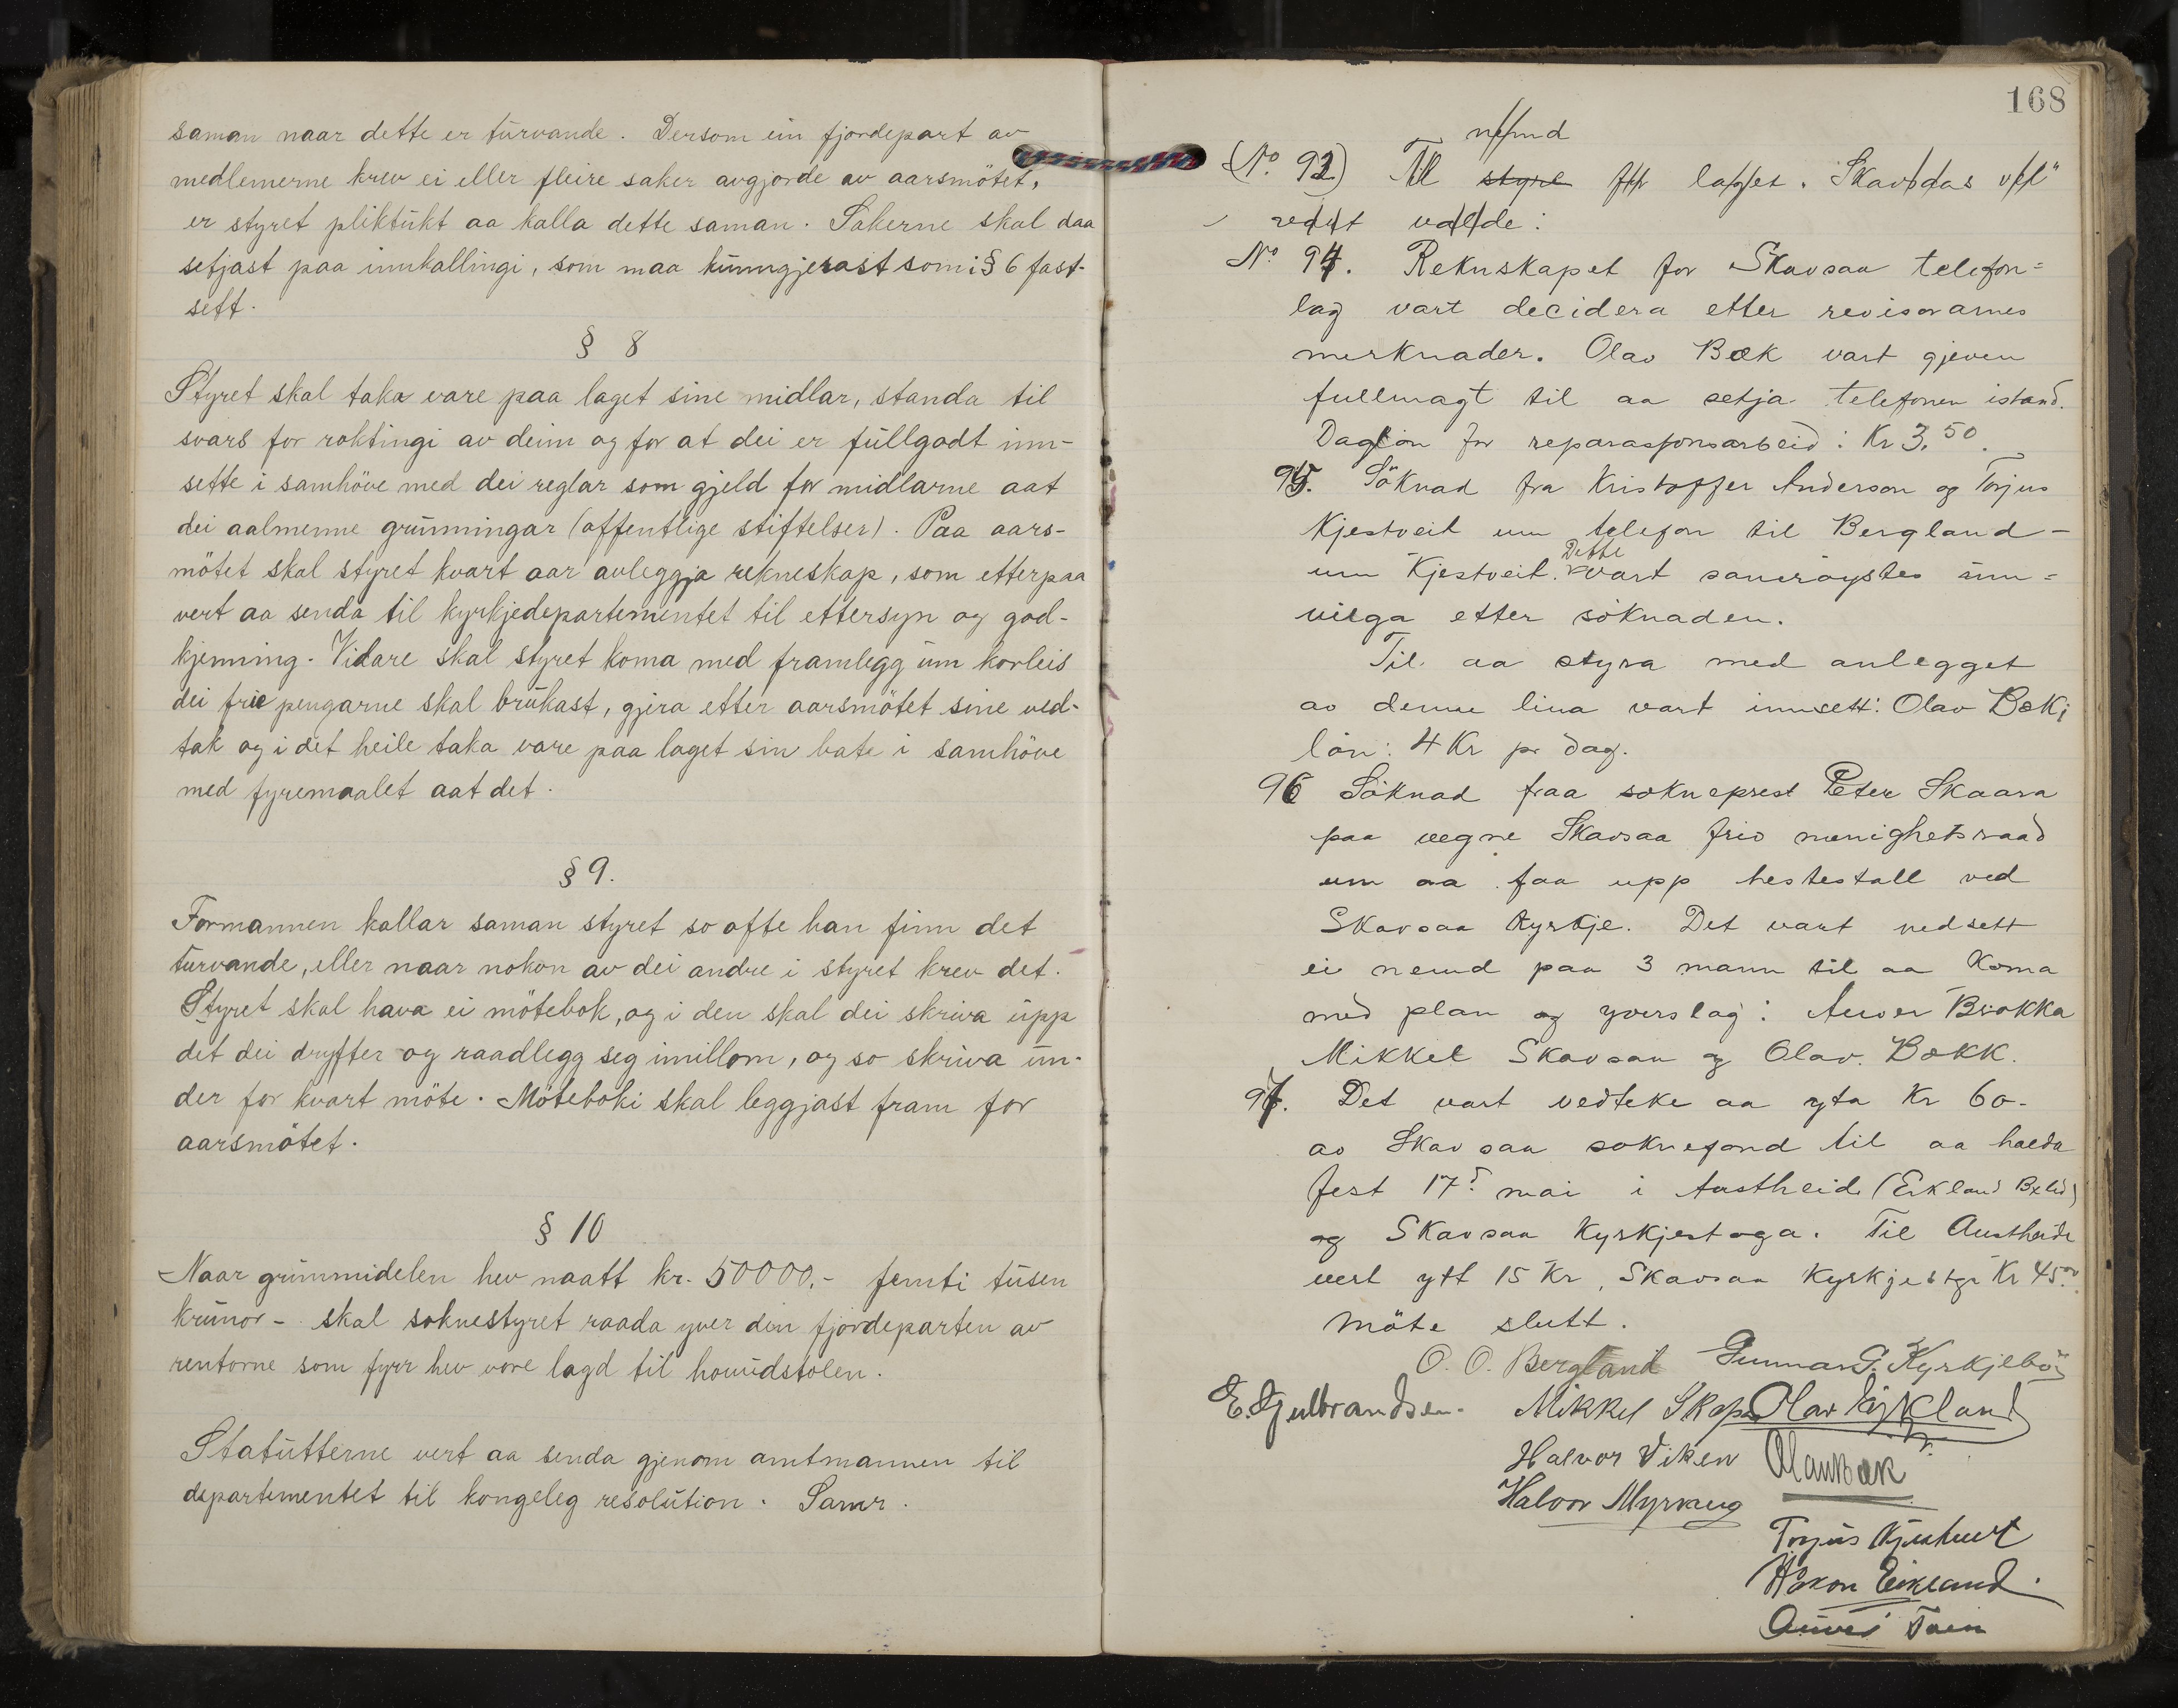 saman naar dette er turvande. Dersom ein fjordepart av
medlemerne krev ei eller fleire saker avgjorde av aarsmötet,
er styret pliktukt aa kalla dette saman. Sakerne skal daa
setjast paa innkallingi, som maa kunngjerast som i § 6 fast-
sett.
§ 8
Styret skal taka vare paa laget sine midlar, standa til
svars for röktingi av deim og for at dei er fullgodt inn-
sette i samhöve med dei reglar som gjeld for midlarne aat
dei aalmenne grunningar (offentlige stiftelser). Paa aars-
mötet skal styret kvart aar avleggja rekneskap, som etterpaa
vert aa senda til kyrkjedepartementet til ettersyn og god-
kjenning. Vidare skal styret koma med framlegg um korleis
dei frie pengarne skal brukast, gjera etter aarsmötet sine ved-
tak og i det heile taka vare paa laget sin bate i samhöve
med fyremaalet aat det.
§ 9.
Formannen kallar saman styret so ofte han finn det
turvande, eller naar nokon av dei andre i styret krev det.
Styret skal hava ei mötebok, og i den skal dei skriva upp
det dei dryfter og raadlegg seg imillom, og so skriva un-
der for kvart möte. Möteboki skal leggjast fram for
aarsmötet.
§ 10
Naar grunnmidelen hev naatt kr. 50000,- femti tusen
krunor - skal soknestyret raada yver den fjordeparten av
rentorne som fyrr hev vore lagd til hovudstolen.
Statutterne vert aa senda gjenom amtmannen til
departementet til kongeleg resolution. Samr.
168
nemnd
(No. 92) Til styre for laget. Skavsdas vel"
valde:
No 94. Reknskapet for Skavsaa telefon=
lag vart decidera etter revisorarnes
merknader. Olav Bæk vart gjeven
fullmagt til aa setja telefonen istand.
Daglön for reparasjonsarbeid: Kr 3.50.
95. Söknad fra Kristoffer Anderson og Torjus
Kjestveit um telefon til Bergland -
Dette
um Kjestveit. vart samröystes inn=
vilga etter söknaden.
Til aa styra med anlegget
av denne lina vart innsett: Olav Bæk;
lön: 4 Kr pr dag.
96 Söknad fraa sokneprest Peter Skaara
paa vegne Skavsaa frio menighetsraad
um aa faa upp hestestall ved
Skavsaa Kyrkje. Det vart nedsett
ei nemnd paa 3 mann til aa Koma
med plan og yverslag: Anver Brökka
Mikkel Skavsaa og Olav Bækk.
97. Det vart vedteke aa yta Kr 60.
av Skavsaa soknefond til aa halda
fest 17d mai i Austheide (Eikland
og Skavsaa Kyrkjestoga. Til Austheide
vert ytt 15 Kr, Skavsaa Kyrkjestga Kr 45.
Möte slutt.
O. O. Bergland Gunnar G. Kyrkjebö
E. Gulbrandsen. Mikkel Olav Eikland
Halvor Viken Olav Bæk
Halvor Myrvang
Torjus Kjestveit
Håkon Eikland.